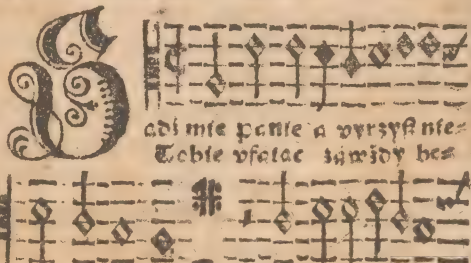 Sadź mie panie a vyrzyſt nie⸗
Tobie vfaiac záwżdy bes